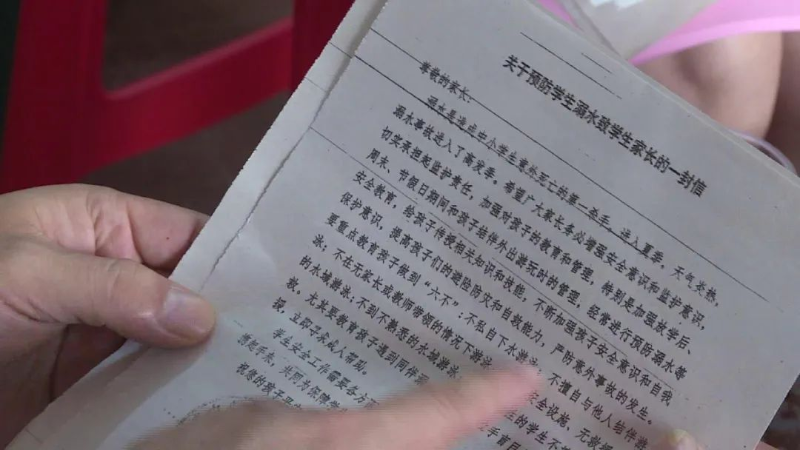 关于预防学生溺水致学生家长的一封信
尊敬的家长：
溺水是造成中小学生意外死亡的第一杀手。进入夏季，天气炎热，
溺水事故进入了高发季。希望广大家长务必增强安全意识和监护意识，
切实承担起监护责任，加强对孩子的教育和管理，特别是加强放学后、
周末、节假日期间和孩子结伴外出游玩时的管理，经常进行预防溺水等
安全教育，给孩子传授相关知识和技能，不断加强孩子安全意识和自我
保护意识，提高孩子们的避险防灾和自救能力，严防意外事故的发生。
要重点教育孩子做到“六不”：不私自下水游泳；不擅自与他人结伴游
泳；不在无家长或教师带领的情况下游泳 安全设施、无救援
的水域游泳；不到不熟悉的水域游泳 性的学生不
救。尤其要教育孩子遇到同伴 手盲目
援，立即寻求成人帮助。
学生安全工作需要各方
携起手来，共同为保障学
祝您的孩子